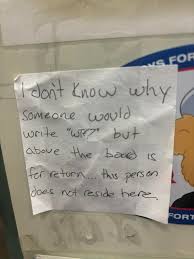 KS FOR
I don't know why
someone would
write "WTF?" but
above the is
for return... this person
does not reside here.
FORT